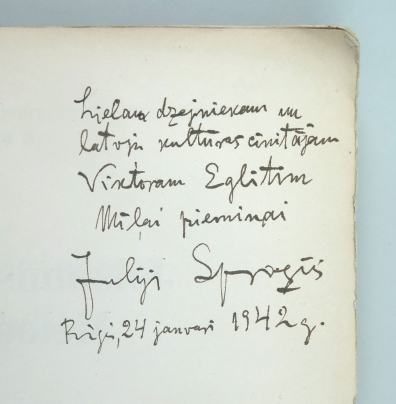 Lielam dzejniekam un
latvju kultūras cīnītājam
Viktoram Eglītim
Mīļai piemiņai
Julijs Sproģis
Rīgā, 24 janvarī 1942 g.